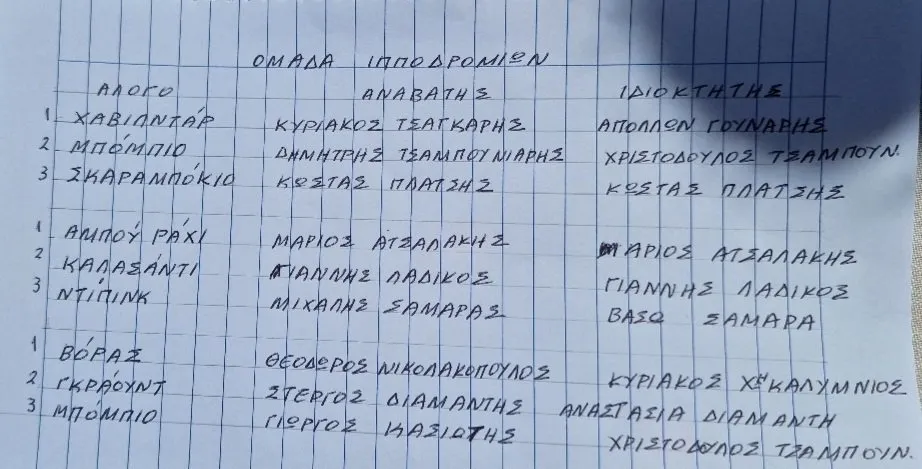 ΟΜΑΔΑ ΙΠΠΟΔΡΟΜΙΩΝ
ΑΛΟΓΟ ΑΝΑΒΑΤΗΣ ΙΔΙΟΚΤΗΤΗΣ
1 ΧΑΒΙΑΝΤΑΡ ΚΥΡΙΑΚΟΣ ΤΣΑΓΚΑΡΗΣ ΑΠΟΛΛΩΝ ΓΟΥΝΑΡΗΣ
2 ΜΠΟΜΠΙΟ ΔΗΜΗΤΡΗΣ ΤΣΑΜΠΟΥΝΙΑΡΗΣ ΧΡΙΣΤΟΔΟΥΛΟΣ ΤΣΑΜΠΟΥΝ.
3 ΣΚΑΡΑΜΠΟΚΙΟ ΚΩΣΤΑΣ ΠΛΑΤΣΗΣ ΚΩΣΤΑΣ ΠΛΑΤΣΗΣ
1 ΑΜΠΟΎ ΡΆΧΙ ΜΑΡΙΟΣ ΑΤΣΑΛΑΚΗΣ ΜΑΡΙΟΣ ΑΤΣΑΛΑΚΗΣ
2 ΚΑΛΑΣΆΝΤΙ ΓΙΑΝΝΗΣ ΛΑΔΙΚΟΣ ΓΙΑΝΝΗΣ ΛΑΔΙΚΟΣ
3 ΝΤΊΠΙΝΚ ΜΙΧΑΛΗΣ ΣΑΜΑΡΑΣ ΒΑΣΩ ΣΑΜΑΡΑ
1 ΒΌΡΑΣ ΘΕΟΔΩΡΟΣ ΝΙΚΟΛΑΚΟΠΟΥΛΟΣ ΚΥΡΙΑΚΟΣ Χ"ΚΑΛΥΜΝΙΟΣ
2 ΓΚΡΆΟΥΝΤ ΣΤΕΡΓΟΣ ΔΙΑΜΑΝΤΗΣ ΑΝΑΣΤΑΣΙΑ ΔΙΑΜΑΝΤΗ
3 ΜΠΌΜΠΙΟ ΓΙΩΡΓΟΣ ΚΑΣΙΩΤΗΣ ΧΡΙΣΤΟΔΟΥΛΟΣ ΤΣΑΜΠΟΥΝ.